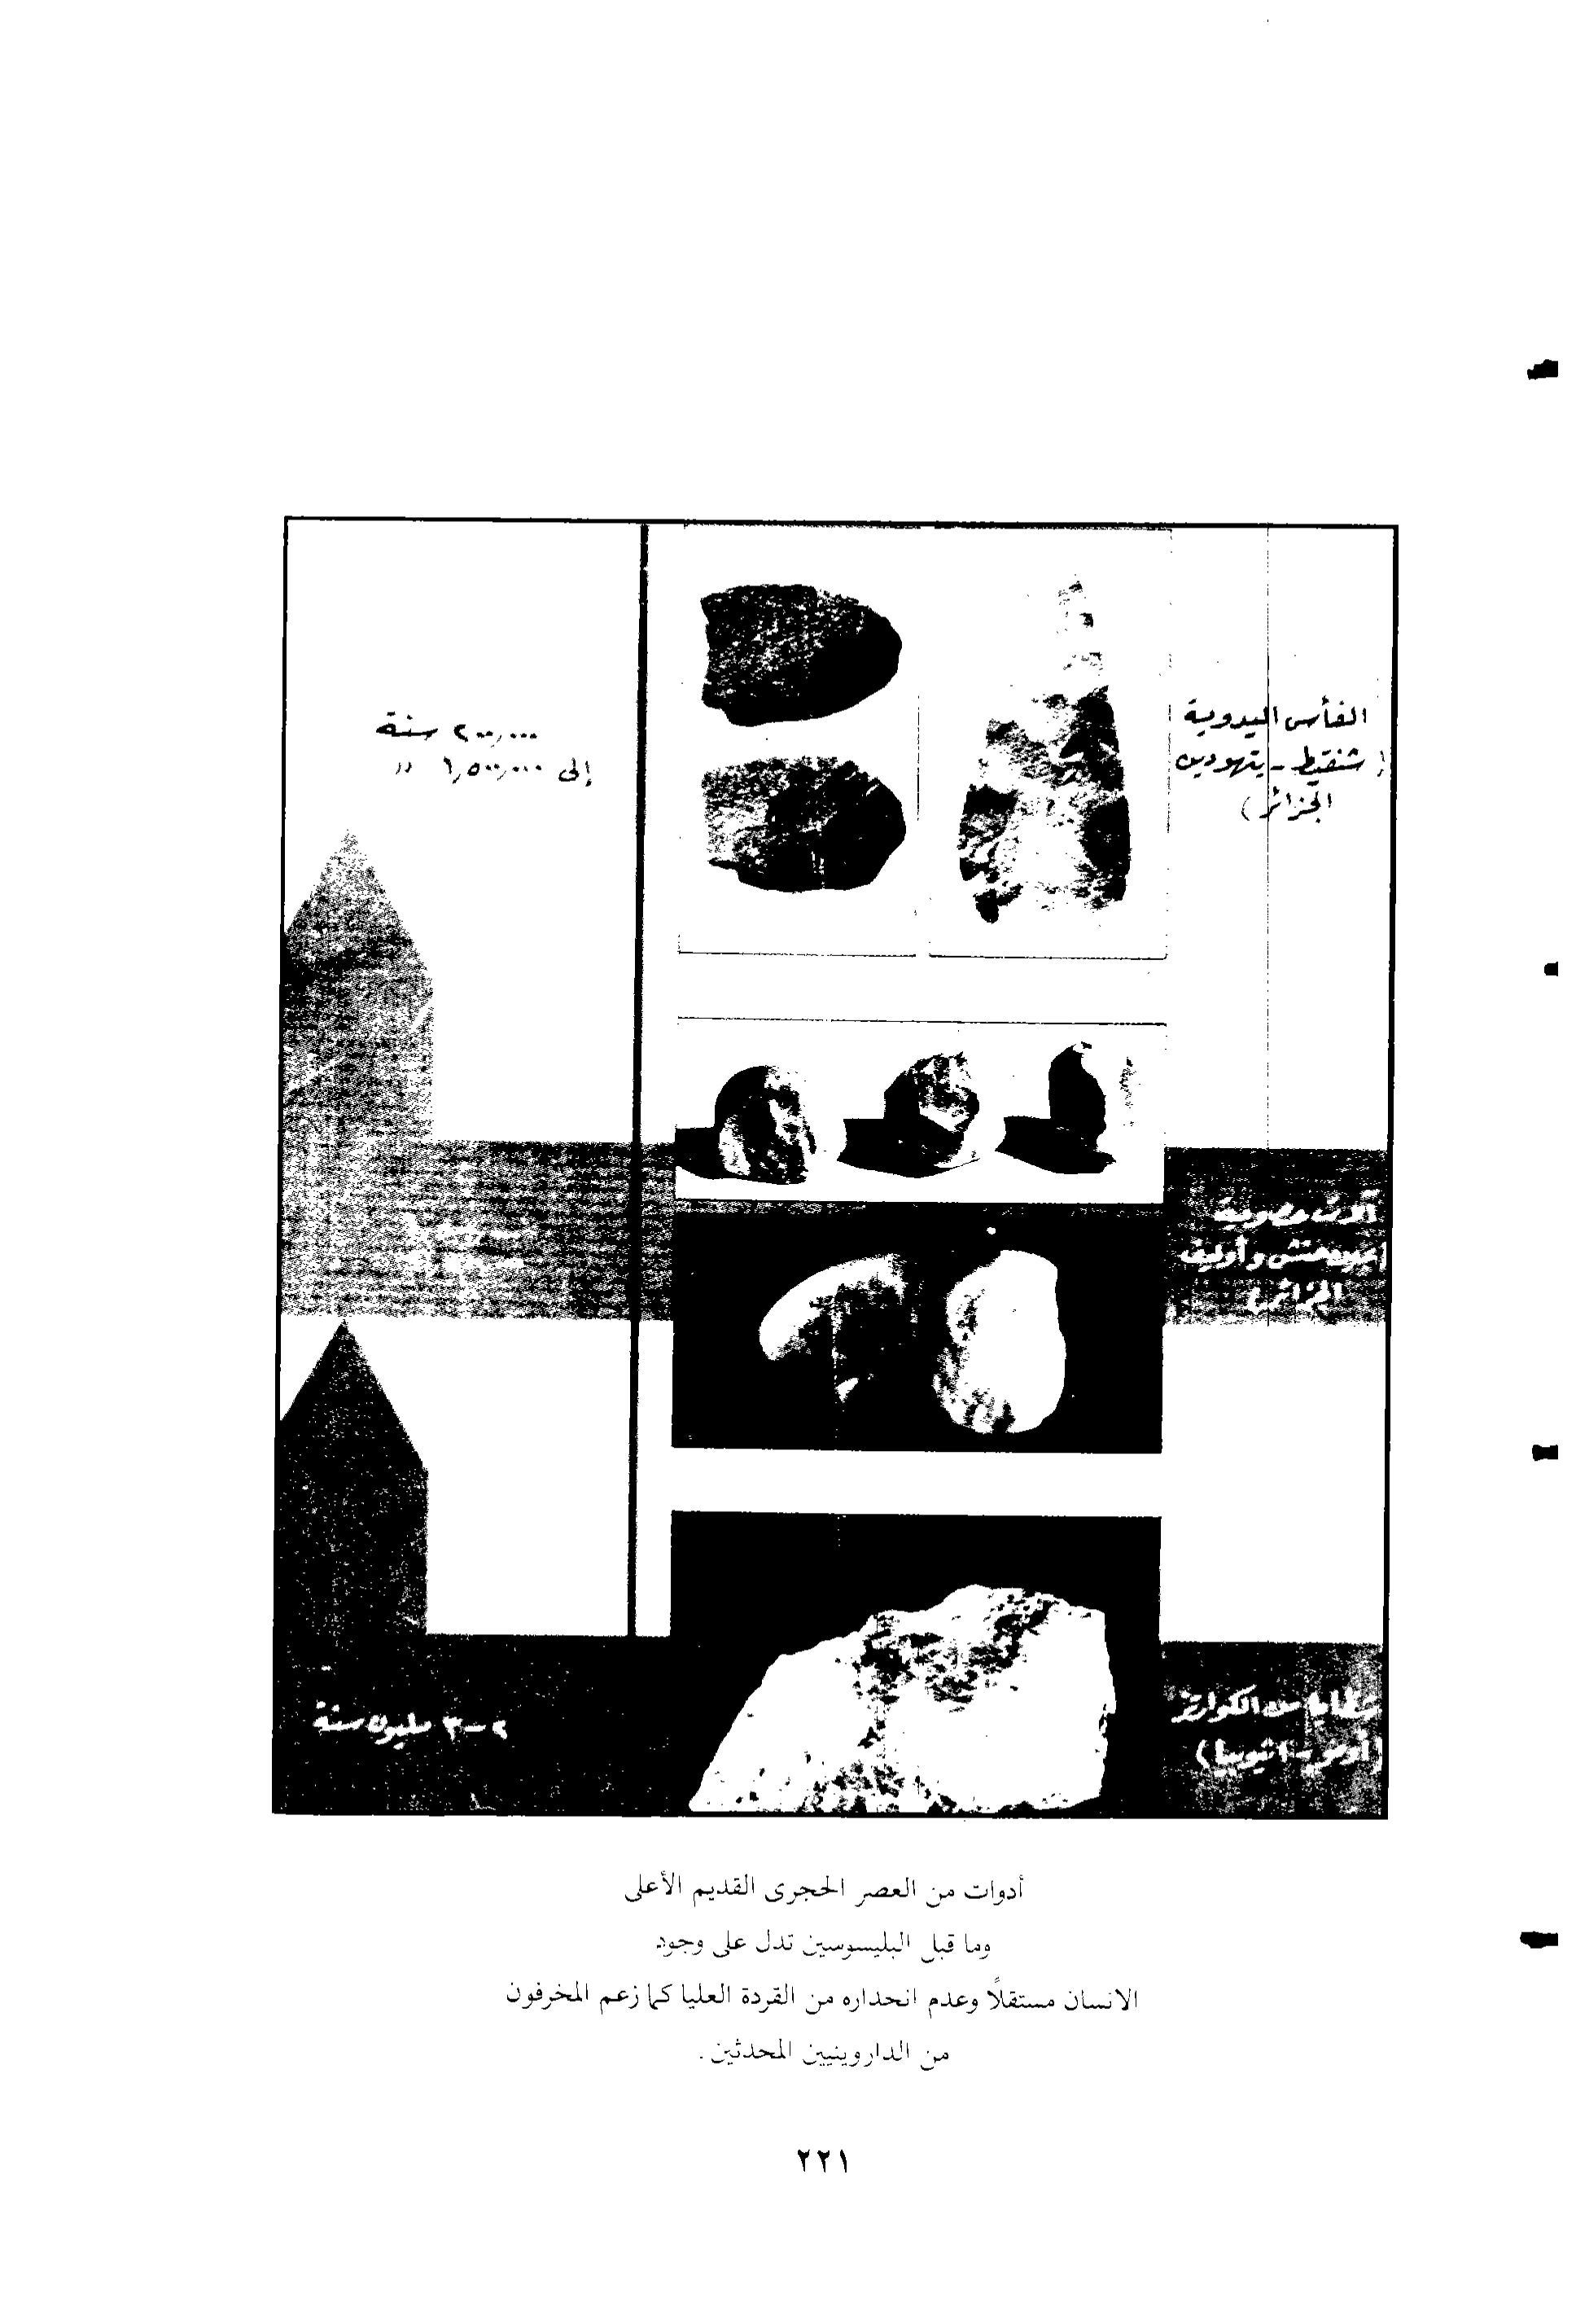 الفأس اليدوية
( شنقيط - يتهودين
الجزائر )
٢٠٠,٠٠٠ سنة
إلى ١,٥٠٠,٠٠٠ "
الجزائر )
شظايا من الكوارتز
( أومو - اثيوبيا )
٢-٣ مليون سنة
أدوات من العصر الحجرى القديم الأعلى
وما قبل البليسوسين تدل على وجود
الانسان مستقلًا وعدم انحداره من القردة العليا كما زعم المخرفون
من الداروينيين المحدثين .
٢٢١